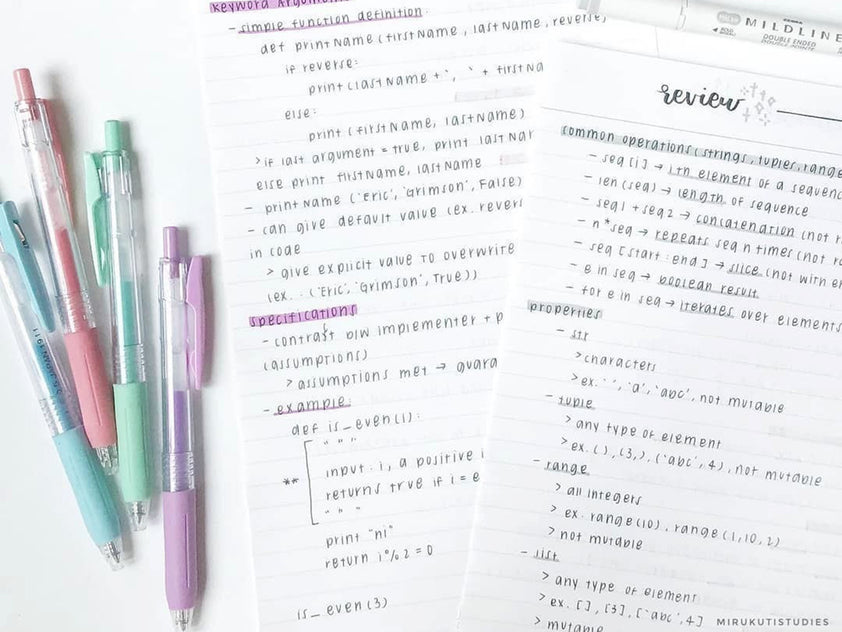 keyword argum
- simple function definition:
def printName (firstName, lastName, reverse)
if reverse:
print (lastName + ', ' + firstNa
else:
print (firstName, lastName)
> if last argument = true, print lastNam
else print firstName, lastName
- printName ('Eric', 'Grimson', False)
- can give default value (ex. revers
in code
> give explicit value to overwrite
(ex. : ('Eric', 'Grimson', True))
specifications
- contrast b/w implementer + p
(assumptions)
> assumptions met → guara
- example:
def is_even(i):
" " "
** input: i, a positive i
returns true if i = e
" " "
print "ni"
return i % 2 = 0
is_even (3)
MILDLINE
DOUBLE ENDED
review
common operations (strings, tuples, range
- seq [i] → ith element of a sequenc
- len (seq) → length of sequence
- seq1 + seq2 → concatenation (not r
- n * seq → repeats seq n times (not ra
- seq [start : end] → slice (not with en
- e in seq → boolean result
- for e in seq → iterates over elements
properties
- str
> characters
> ex. ' ', 'a', 'abc', not mutable
- tuple
> any type of element
> ex. (), (3,), ('abc', 4), not mutable
- range
> all integers
> ex. range (10), range (1, 10, 2)
> not mutable
- list
> any type of element
> ex. [], [3], ['abc', 4]
> mutable
MIRUKUTISTUDIES